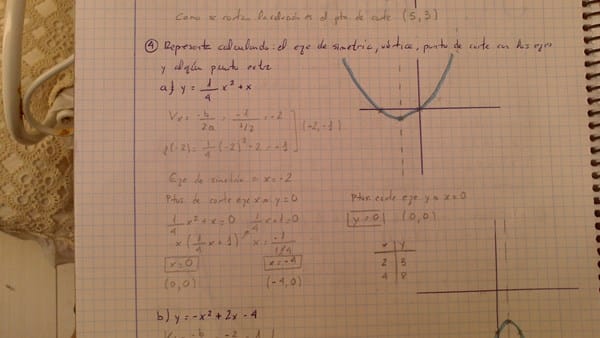 Como se cortan la solución es el pto de corte (5,3)
④ Representa calculando: el eje de simetría, vértice, punto de corte con los ejes
y algún punto extra
a) y = 1/4 x² + x
Vx = -b/2a = -1/1/2 = -2
f(-2) = 1/4 (-2)² - 2 = -1
(-2,-1)
Eje de simetría = x = -2
Ptos de corte eje x = y = 0
1/4 x² + x = 0
1/4 x + 1 = 0
x (1/4 x + 1)
x = -1/1/4
x = 0
x = -4
(0,0)
(-4,0)
Ptos corte eje y = x = 0
y = 0 (0,0)
x y
2 3
4 8
b) y = -x² + 2x - 4